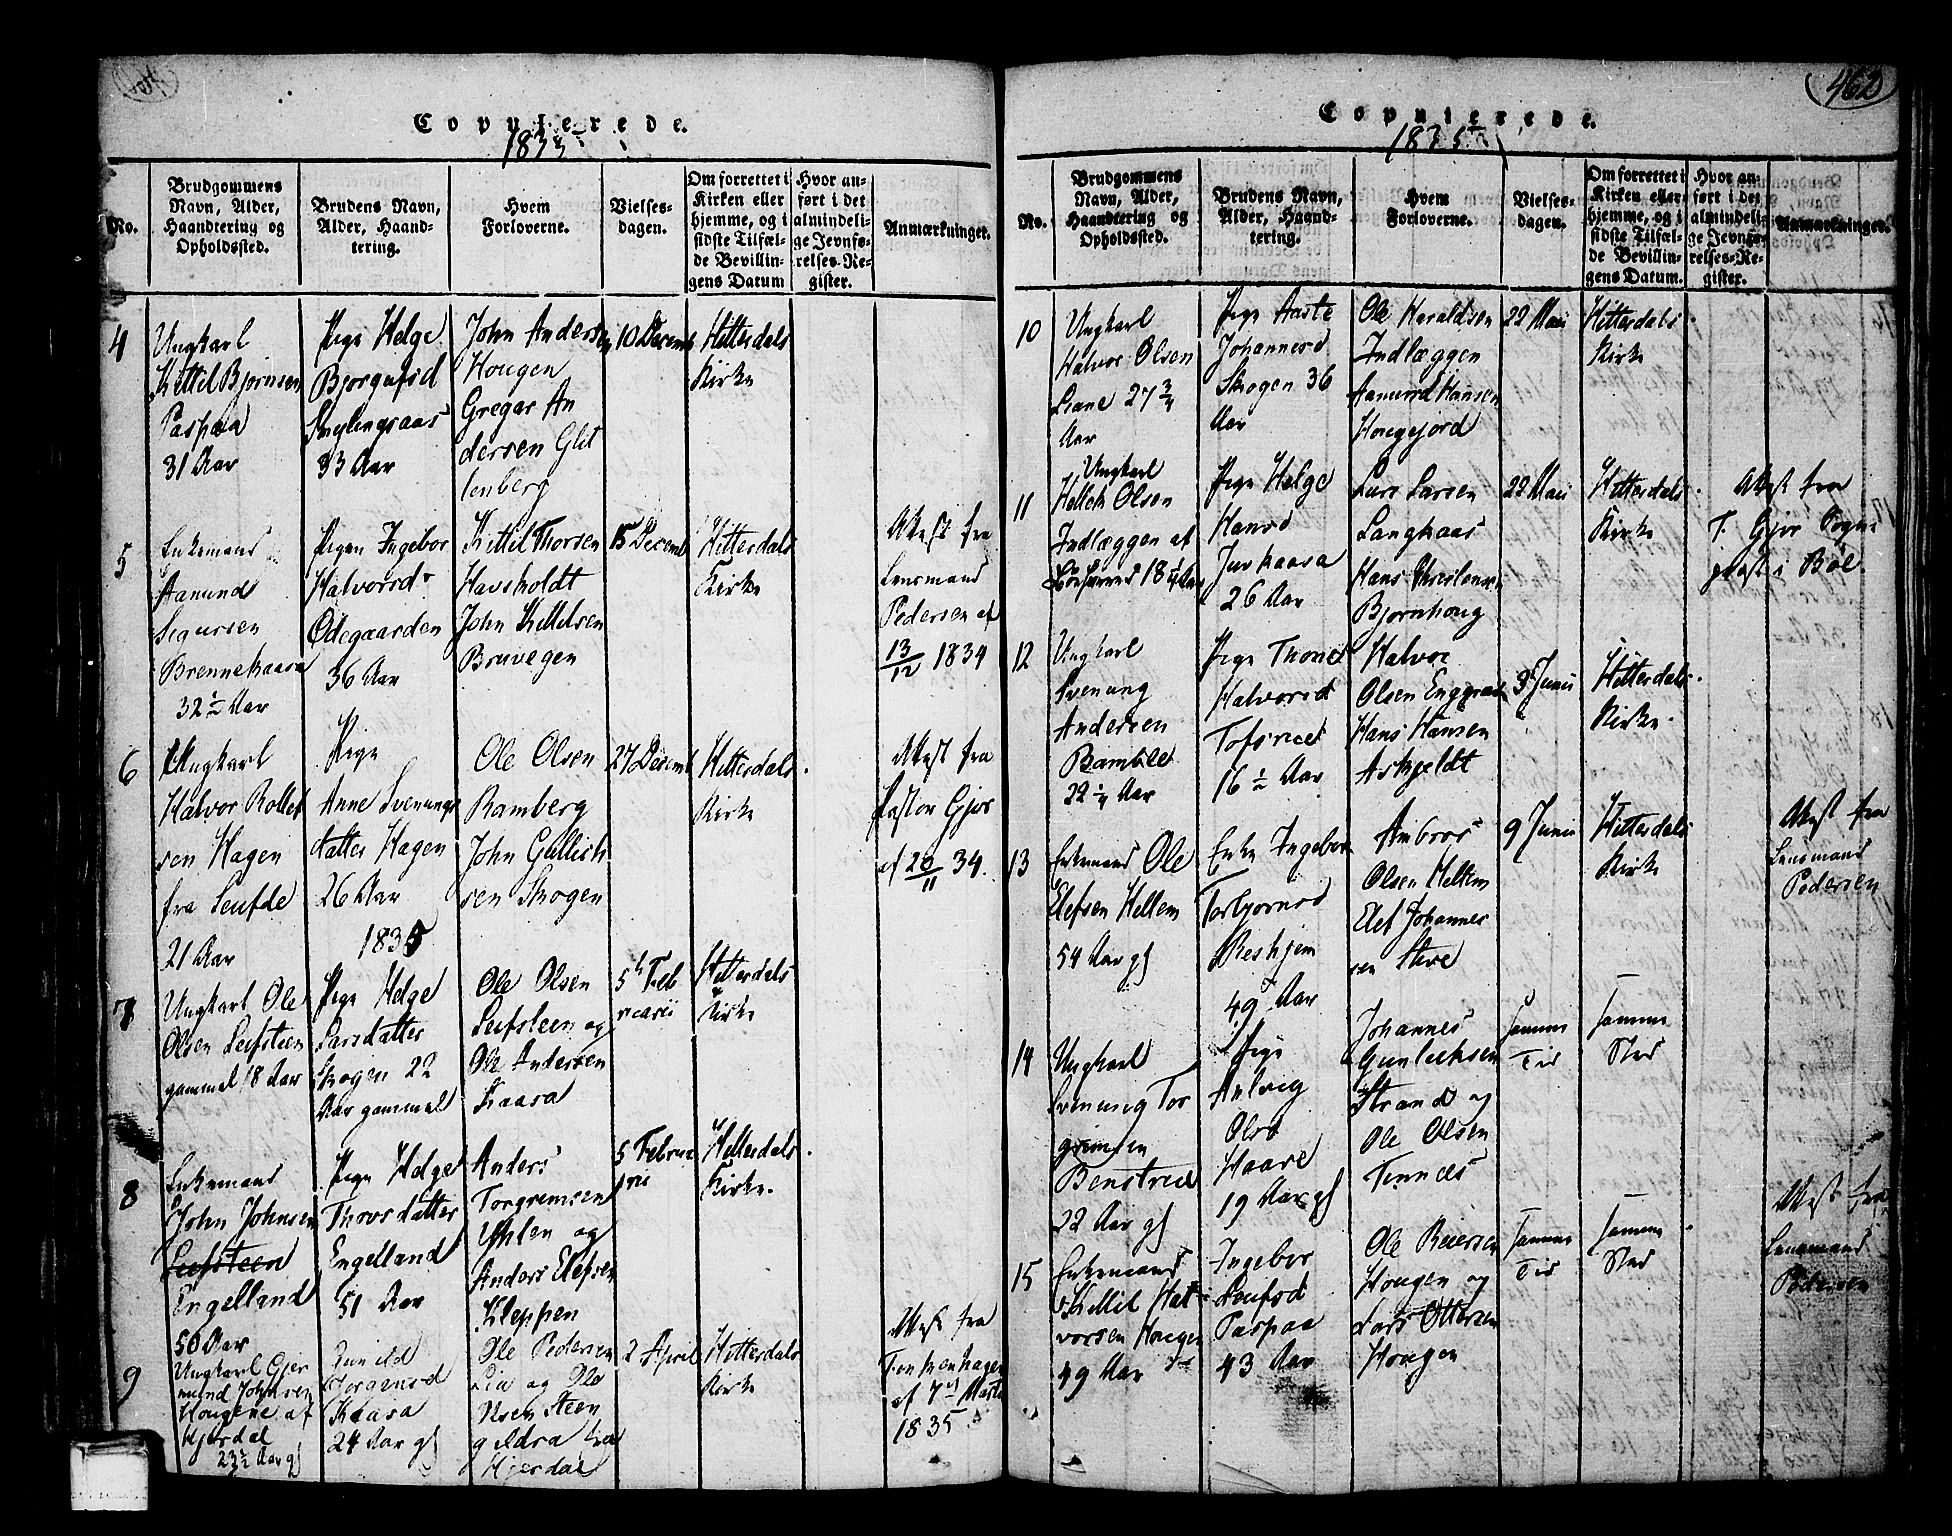 462
Copulerede.
1835
No.
Brudgommens
Navn, Alder,
Haandtering og
Opholdssted.
Brudens Navn,
Alder, Haand-
tering.
Hvem
Forloverne.
Vielses-
dagen.
Om forrettet i
Kirken eller
hjemme, og i
sidste Tilfæl-
de Bevillin-
gens Datum
Hvor an-
ført i det
almindeli-
ge Jevnfø-
relses-Re-
gister.
Anmærkninger.
4
Ungkarl
Kettil Bjørnsen
Paspaa
31 Aar
Pige Helge
Bjorgufsd
33 Aar
John Andersen
Hougen
Gregar An
dersen Glit
lenberg
10 Decemb
Hitterdals
Kirke
5
Enkemand
Aanund
Sigursen
Brennekaasa
32½ Aar
Pigen Ingebor
Halvorsd
Ødegaarden
36 Aar
Kittil Thorsen
Havskoldt
John Kittelsen
Bruvegen
15 Decemb
Hitterdals
Kirke
Attest fra
Lensmand
Pedersen af
13/12 1834
6
Ungkarl
Halvor Rollef
sen Hagen
fra Seufde
21 Aar
Pige
Anne Svenungs
datter Hagen
26 Aar
Ole Olsen
Bamberg
John Gullich
sen Skogen
27 Decemb
Hitterdals
Kirke
Attest fra
Pastor Gjør
af 20/11 34.
1835
7
Ungkarl Ole
Olsen Leefsteen
gammel 18 Aar
Pige Helge
Larsdatter
Skogen 22
Aar gammel
Ole Olsen
Leefsteen og
Ole Andersen
Kaasa
5 Feb
ruarii
Hitterdals
Kirke
8
Enkemand
John Johnsen
Leefsteen
Engelland
50 Aar
Pige Helge
Thorsdatter
Engelland
51 Aar
Anders
Torgrimsen
Yhlen og
Anders Elefsen
Kleppen
5 Februa
rii
Hitterdals
Kirke.
9
Ungkarl Gjer
mund Johnsen
Hougene af
Hjerdal
23½ Aar gl
Gunild
Jorgensd
Kaasa
24 Aar gl
Ole Pedersen
Lia og Ole
Olsen Steen
gildra fra
Hjerdal
2 April
Hitterdals
Kirke
Attest fra
af 7de Marts
1835
Copulerede.
1835
No.
Brudgommens
Navn, Alder,
Haandtering og
Opholdssted.
Brudens Navn,
Alder, Haand-
tering.
Hvem
Forloverne.
Vielses-
dagen.
Om forrettet i
Kirken eller
hjemme, og i
sidste Tilfæl-
de Bevillin-
gens Datum.
Hvor an-
ført i det
almindeli-
ge Jevnfø-
relses-Re-
gister.
Anmærkninger.
10
Ungkarl
Halvor Olsen
Liane 27 3/4
Aar
Pige Aaste
Johannesd
Skogen 36
Aar
Ole Haraldsen
Indlæggen
Aanund Hansen
Hougejord
22 Mai
Hitterdals
Kirke
11
Ungkarl
Hellek Olsen
Indlæggen af
18¼ Aar
Pige Helge
Hansd
Jurkaasa
26 Aar
Lars Larsen
Langkaas
Hans Christensen
Bjornhoug
22 Mai
Hitterdals
Kirke
Attest fra
T. Gjør Sogne
præst i Bøe.
12
Ungkarl
Svenung
Andersen
Bamble
22¼ Aar
Pige Thone
Halvorsd
Tofsrud
16½ Aar
Halvor
Olsen Enggrav
Hans Hansen
Askjeldt
3 Junii
Hitterdals
Kirke.
13
Enkemand Ole
Elefsen Heltem
54 Aar gl
Enke Ingebor
Torbjornsd
Reskjem
49 Aar
Ambros
Olsen Heltem
Elef Johannes
sen
9 Junii
Hitterdals
Kirke
Attest fra
Lensmand
Pedersen
14
Ungkarl
Svenung Tor
grimsen
Benstrud
22 Aar gl
Pige
Anlaug
Olsd
Haave
19 Aar gl
Johannes
Gunleiksen
Strand og
Ole Olsen
Tinnes
Samme
Tid
Samme
Sted
15
Enkemand
Kittil Hal-
vorsen Hougen
49 Aar
Ingebor
Leufsd
Paspaa
43 Aar
Ole Reiersen
Hougen og
Lars Ottersen
Hougen
Samme
Tid
Samme
Sted
Attest fra
Lensmand
Pedersen